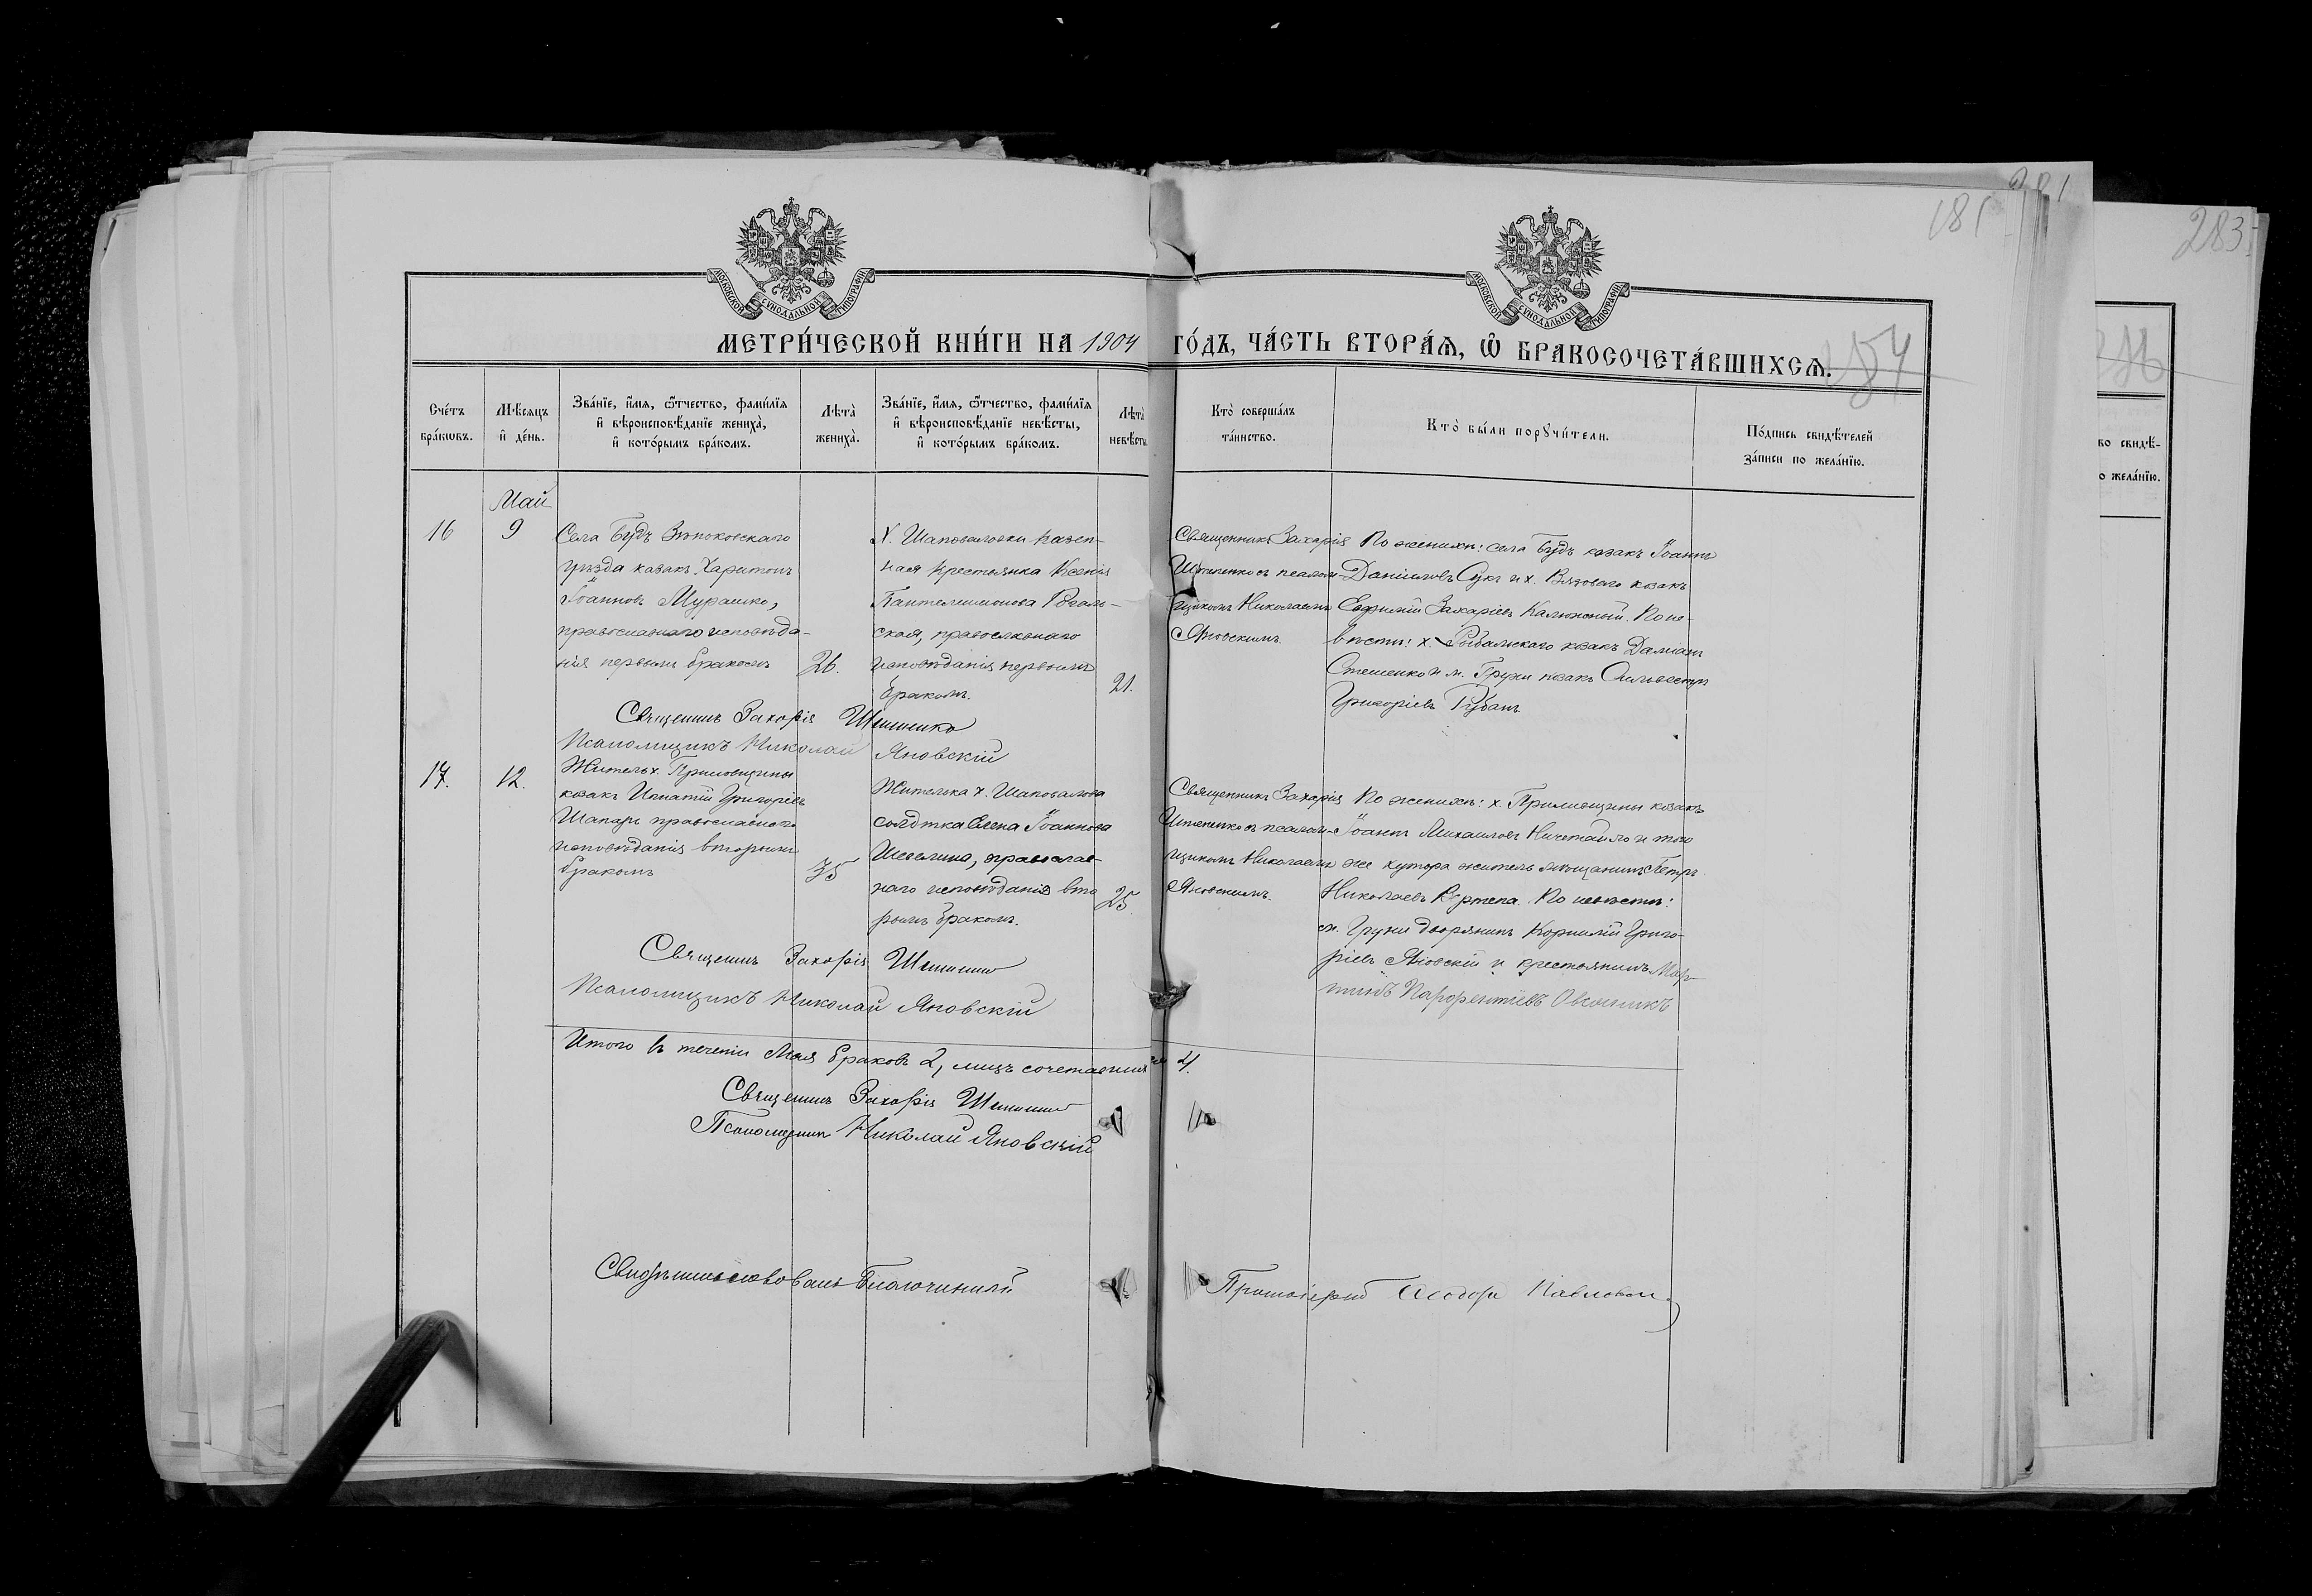 181
281
283
МОСКОВСКОЙ СѴНОДАЛЬНОЙ ТИПОГРАФІИ
МОСКОВСКОЙ СѴНОДАЛЬНОЙ ТИПОГРАФІИ
МЕТРИ́ЧЕСКОЙ КНИ́ГИ НА 1904 ГО́ДЪ, ЧА́СТЬ ВТОРА́Ѧ, Ѽ БРАКОСОЧЕТА́ВШИХСѦ.
Сче́тъ бра́кѡвъ.
Мѣ́сѧцъ и҆ де́нь.
Зва́нїе, и҆́мѧ, ѻ҆́тчество, фами́лїѧ и҆ вѣроисповѣ́данїе жениха̀, и҆ кото́рымъ бра́комъ.
Лѣта̀ жениха̀.
Зва́нїе, и҆́мѧ, ѻ҆́тчество, фами́лїѧ и҆ вѣроисповѣ́данїе невѣ́сты, и҆ кото́рымъ бра́комъ.
Лѣта̀ невѣ́сты
Кто̀ соверша́лъ та́инство.
Кто̀ бы́ли порꙋчи́тели.
По́дпись свидѣ́телей за́писи по жела́нїю.
во свидѣ́-
о жела́нїю.
Май
16
9
Села Будъ Зѣньковскаго
уѣзда казакъ Харитонъ
Іоанновъ Мурашко,
православнаго исповѣда-
нія первымъ бракомъ
26.
Х. Шаповаловки казен-
ная крестьянка Ксенія
Пантелеимонова
ская, православнаго
исповѣданія первымъ
бракомъ.
21.
Священникъ Захарія
съ псалом-
щикомъ Николаемъ
Яновскимъ.
По женихѣ: села Будъ казакъ Іоаннъ
Даніиловъ Сукъ и х. Вязоваго козакъ
Евфимій Захаріевъ Калюжный. По не-
вѣстѣ: х. Рыбальскаго козакъ Даміанъ
Стеменко и м. Груни козакъ Сильвестръ
Григоріевъ Губань.
Священникъ Захарія
Псаломщикъ Николай Яновскій
17.
12.
Житель х.
козакъ Игнатій Григоріевъ
Шапарь православнаго
исповѣданія вторымъ
бракомъ
35
Жителька х. Шаповалова
солдтка Елена Іоаннова
Шевелина, православ-
наго исповѣданія вто
рымъ бракомъ.
25
Священникъ Захарія
съ псалом-
щикомъ Николаемъ
Яновскимъ.
По женихѣ: х. козакъ
Іоаннъ Михаиловъ Ничетайло и того
же хутора житель мѣщанинъ Петръ
Николаевъ Вертепа. По невѣстѣ:
м. Груни дворянинъ Корнилій Григо-
ріевъ Яновскій и крестьянинъ Мар-
тинъ Парфентіевъ Овсянникъ
Священникъ Захарія
Псаломщикъ Николай Яновскій
Итого въ теченіи Мая браковъ 2, лицъ сочетавшихся 4.
Священникъ Захарія
Псаломщикъ Николай Яновскій
Свидѣтельствовалъ Благочинный
Протоіерей Ѳеодоръ Павловскій